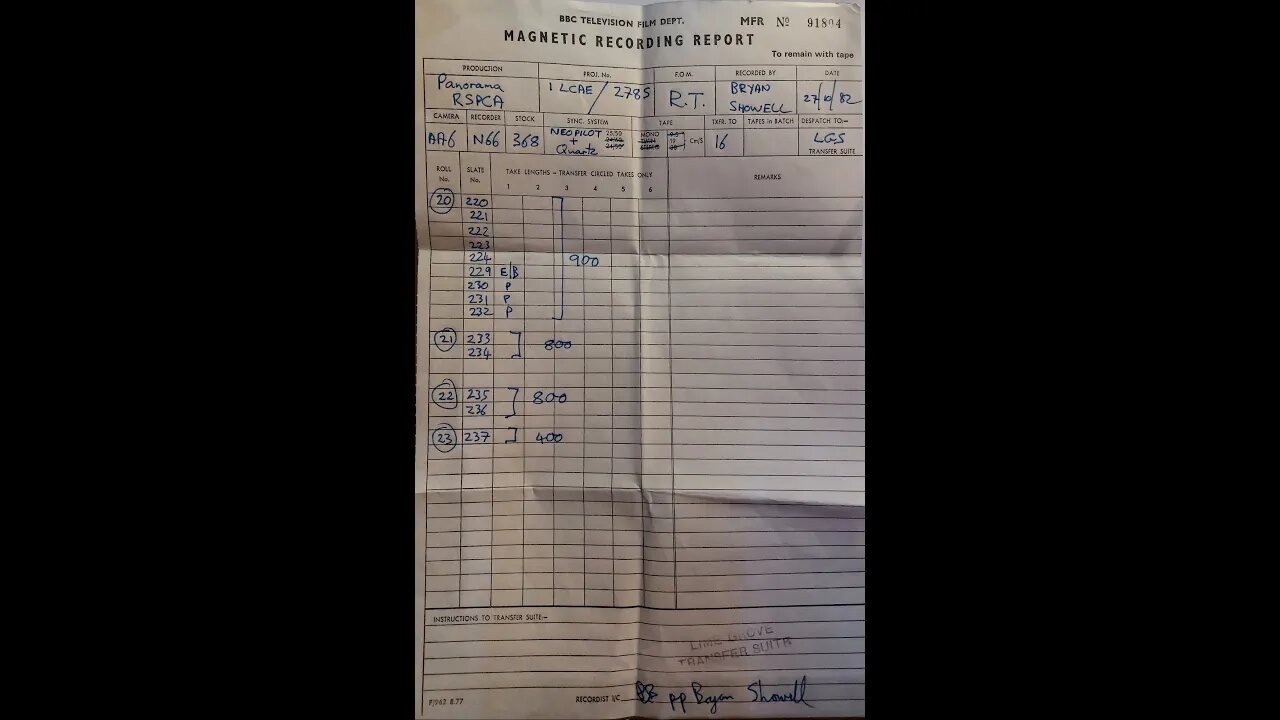 BBC TELEVISION FILM DEPT. MFR № 91804
MAGNETIC RECORDING REPORT
To remain with tape
PRODUCTION PROJ. No. F.O.M. RECORDED BY DATE
Panorama RSPCA 1 LCAE / 2785 R.T. BRYAN SHOWELL 27/10/82
CAMERA RECORDER STOCK SYNC. SYSTEM TAPE TXFR. TO TAPES in BATCH DESPATCH TO:-
AA6 N66 368 NEOPILOT + Quartz 25/50 MONO 19 Cm/S 16 LGS
TRANSFER SUITE
ROLL No. SLATE No. TAKE LENGTHS - TRANSFER CIRCLED TAKES ONLY REMARKS
1 2 3 4 5 6
20 220
221
222
223
224 900
229 E/B
230 P
231 P
232 P
21 233 800
234
22 235 800
236
23 237 400
INSTRUCTIONS TO TRANSFER SUITE:-
LIME GROVE
TRANSFER SUITE
PJ962 8.77 RECORDIST I/C BB pp Bryan Showell